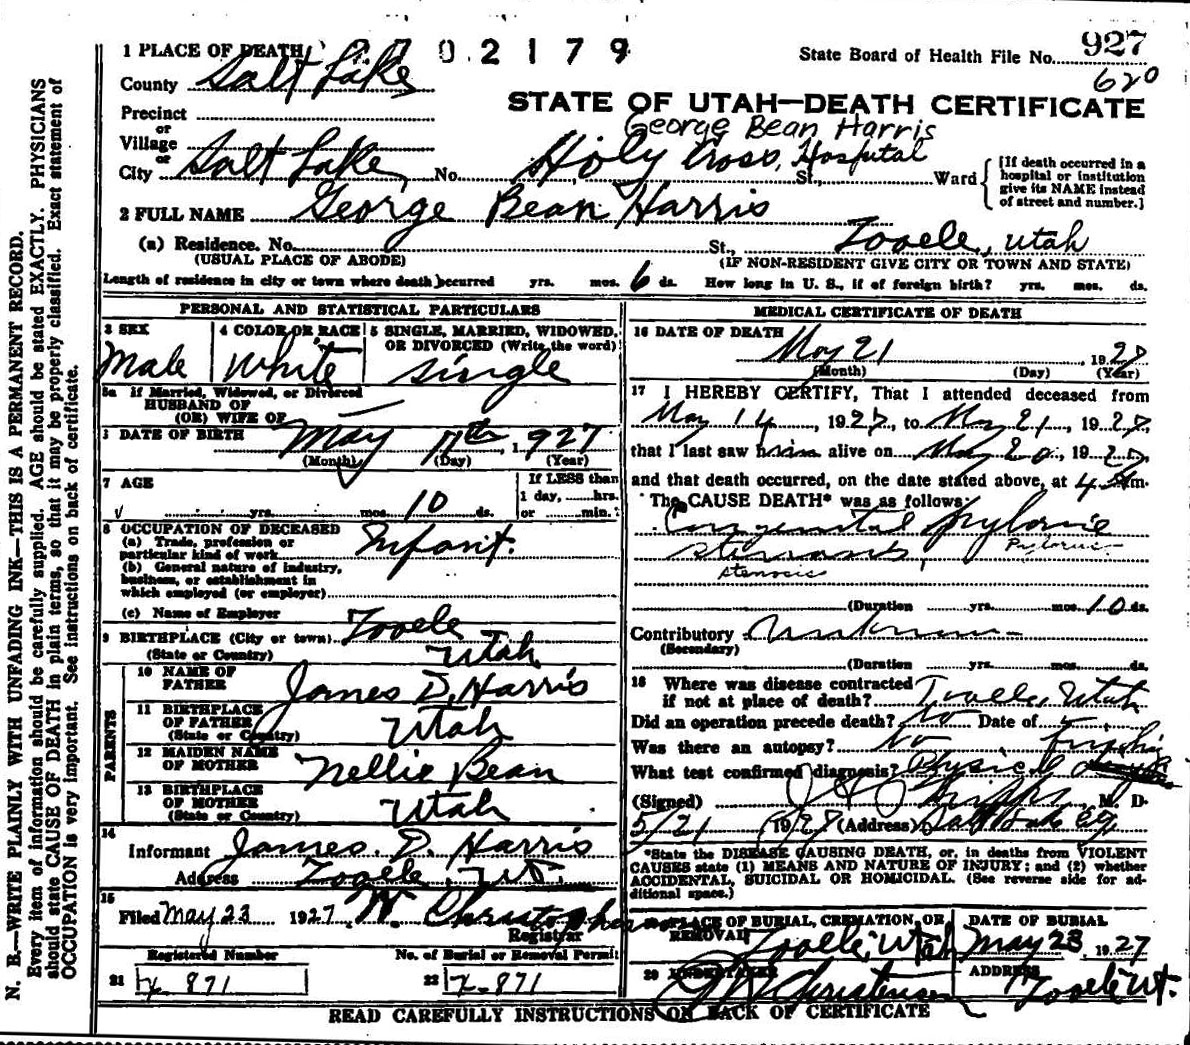 1 PLACE OF DEATH 0 2 1 7 9 State Board of Health File No. 927
County Salt Lake 620
STATE OF UTAH—DEATH CERTIFICATE
Precinct
or
Village George Bean Harris
or
City Salt Lake, No. Holy Cross, Hospital St., Ward
[If death occurred in a
hospital or institution
give its NAME instead
of street and number.]
2 FULL NAME George Bean Harris
(a) Residence. No. St., Tooele, Utah
(USUAL PLACE OF ABODE) (IF NON-RESIDENT GIVE CITY OR TOWN AND STATE)
Length of residence in city or town where death occurred yrs. mos. 6 ds. How long in U. S., if of foreign birth? yrs. mos. ds.
PERSONAL AND STATISTICAL PARTICULARS
3 SEX 4 COLOR OR RACE 5 SINGLE, MARRIED, WIDOWED,
OR DIVORCED (Write the word)
Male White Single
5a If Married, Widowed, or Divorced
HUSBAND OF
(OR) WIFE OF —
DATE OF BIRTH May 11th, 1927
(Month) (Day) (Year)
7 AGE If LESS than
1 day, hrs.
yrs. mos. 10 ds. or min.
8 OCCUPATION OF DECEASED
(a) Trade, profession or
particular kind of work Infant.
(b) General nature of industry,
business, or establishment in
which employed (or employer)
(c) Name of Employer
9 BIRTHPLACE (City or town) Tooele
(State or Country) Utah
PARENTS
10 NAME OF
FATHER James D. Harris
11 BIRTHPLACE
OF FATHER
(State or Country) Utah
12 MAIDEN NAME
OF MOTHER Nellie Bean
13 BIRTHPLACE
OF MOTHER
(State or Country) Utah
14
Informant James. D. Harris
Address Tooele, Ut.
15
Filed May 23 1927 W. Christopherson
Registrar
Registered Number No. of Burial or Removal Permit
21 871 22 871
MEDICAL CERTIFICATE OF DEATH
16 DATE OF DEATH
May 21, 1927
(Month) (Day) (Year)
17 I HEREBY CERTIFY, That I attended deceased from
May 14, 1927, to May 21, 1927,
that I last saw him alive on May 20, 1927,
and that death occurred, on the date stated above, at 4 m.
The CAUSE DEATH* was as follows:
Congenital pyloric
stenosis, Pylorus
stenosis
(Duration yrs. mos. 10 ds.
Contributory Unknown
(Secondary)
(Duration yrs. mos. ds.
18 Where was disease contracted
if not at place of death? Tooele, Utah
Did an operation precede death? No Date of
Was there an autopsy? No
What test confirmed diagnosis? Physical
(Signed) M. D.
5/21 1927 (Address) Salt Lake City
*State the DISEASE CAUSING DEATH, or, in deaths from VIOLENT
CAUSES state (1) MEANS AND NATURE OF INJURY; and (2) whether
ACCIDENTAL, SUICIDAL OR HOMICIDAL. (See reverse side for ad-
ditional space.)
PLACE OF BURIAL, CREMATION, OR
REMOVAL Tooele, Utah
DATE OF BURIAL
May 23, 1927
20 UNDERTAKER Christensen
ADDRESS Tooele Ut.
READ CAREFULLY INSTRUCTIONS ON BACK OF CERTIFICATE
N. B.—WRITE PLAINLY WITH UNFADING INK—THIS IS A PERMANENT RECORD.
Every item of information should be carefully supplied. AGE should be stated EXACTLY. PHYSICIANS
should state CAUSE OF DEATH in plain terms, so that it may be properly classified. Exact statement of
OCCUPATION is very important. See instructions on back of certificate.